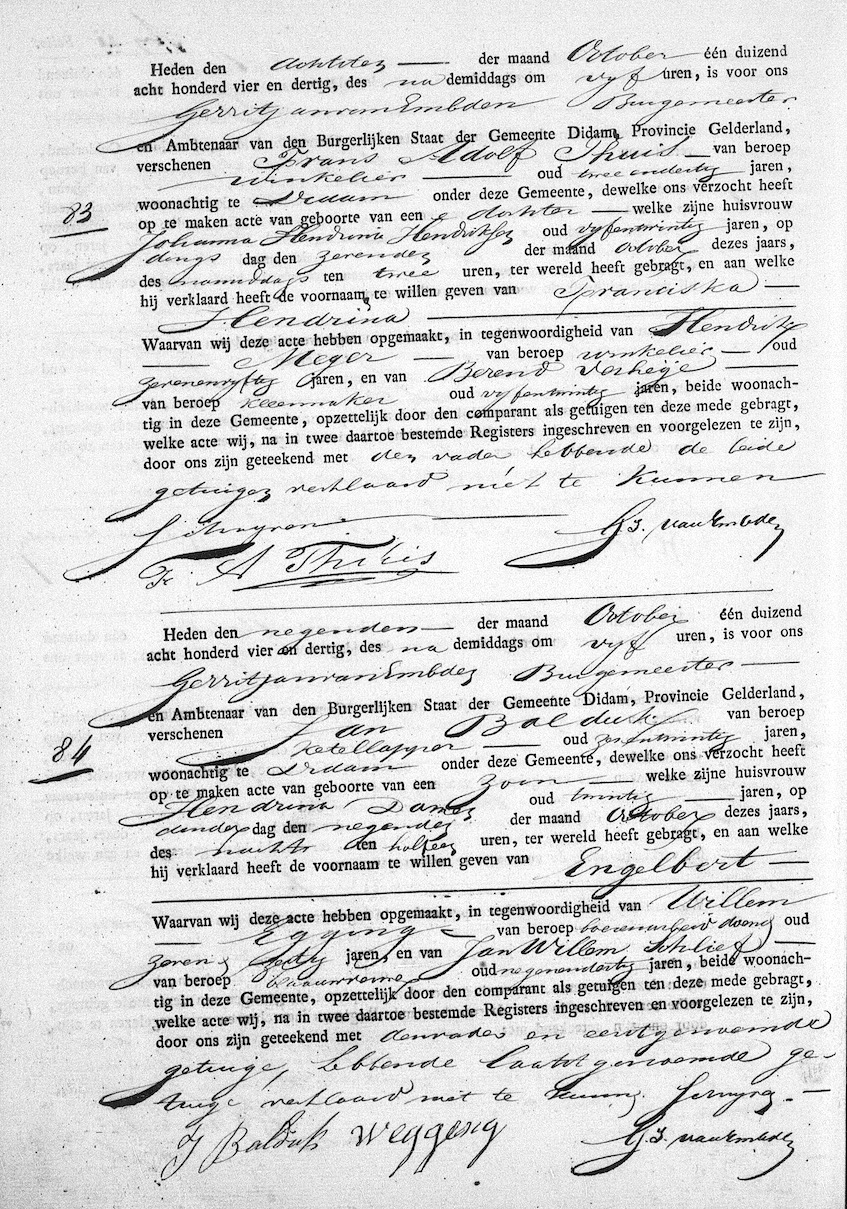 Heden den achtsten der maand October één duizend
acht honderd vier en dertig, des na demiddags om vyf uren, is voor ons
Gerritjan van Embden Burgemeester
en Ambtenaar van den Burgerlijken Staat der Gemeente Didam, Provincie Gelderland,
verschenen Frans Adolf Thuis van beroep
winkelier oud twee endertig jaren,
83
woonachtig te Didam onder deze Gemeente, dewelke ons verzocht heeft
op te maken acte van geboorte van een dochter welke zijne huisvrouw
Johanna Hendrina Hendriksen oud vyfentwintig jaren, op
dings dag den zevenden der maand October dezes jaars,
des namiddags ten twee uren, ter wereld heeft gebragt, en aan welke
hij verklaard heeft de voornaam te willen geven van Franciska
Hendrina
Waarvan wij deze acte hebben opgemaakt, in tegenwoordigheid van Hendrik
Meyer van beroep winkelier oud
zevenenvyftig jaren, en van Berend Verheije
van beroep kleermaker oud vyfentwintig jaren, beide woonach-
tig in deze Gemeente, opzettelijk door den comparant als getuigen ten deze mede gebragt,
welke acte wij, na in twee daartoe bestemde Registers ingeschreven en voorgelezen te zijn,
door ons zijn geteekend met den vader hebbende de beide
getuigen verklaard niet te kunnen
schryven
G J. van Embden
Fr A Thuis
Heden den negenden der maand October één duizend
acht honderd vier en dertig, des na demiddags om vyf uren, is voor ons
Gerritjan van Embden Burgemeester
en Ambtenaar van den Burgerlijken Staat der Gemeente Didam, Provincie Gelderland,
verschenen Jan Balduk van beroep
Ketellapper oud zesentwintig jaren,
84
woonachtig te Didam onder deze Gemeente, dewelke ons verzocht heeft
op te maken acte van geboorte van een zoon welke zijne huisvrouw
Hendrina Dames oud twintig jaren, op
donder dag den negenden der maand October dezes jaars,
des nachts ten half uren, ter wereld heeft gebragt, en aan welke
hij verklaard heeft de voornaam te willen geven van Engelbert
Waarvan wij deze acte hebben opgemaakt, in tegenwoordigheid van Willem
Egging van beroep boerenarbeid doende oud
jaren, en van Jan Willem Schlief
van beroep oud negenendertig jaren, beide woonach-
tig in deze Gemeente, opzettelijk door den comparant als getuigen ten deze mede gebragt,
welke acte wij, na in twee daartoe bestemde Registers ingeschreven en voorgelezen te zijn,
door ons zijn geteekend met den vader en eerstgenoemde
getuige, hebbende laatstgenoemde ge-
tuige verklaard niet te kunnen schryven
J Balduk W eggeng
G. J. van Embden